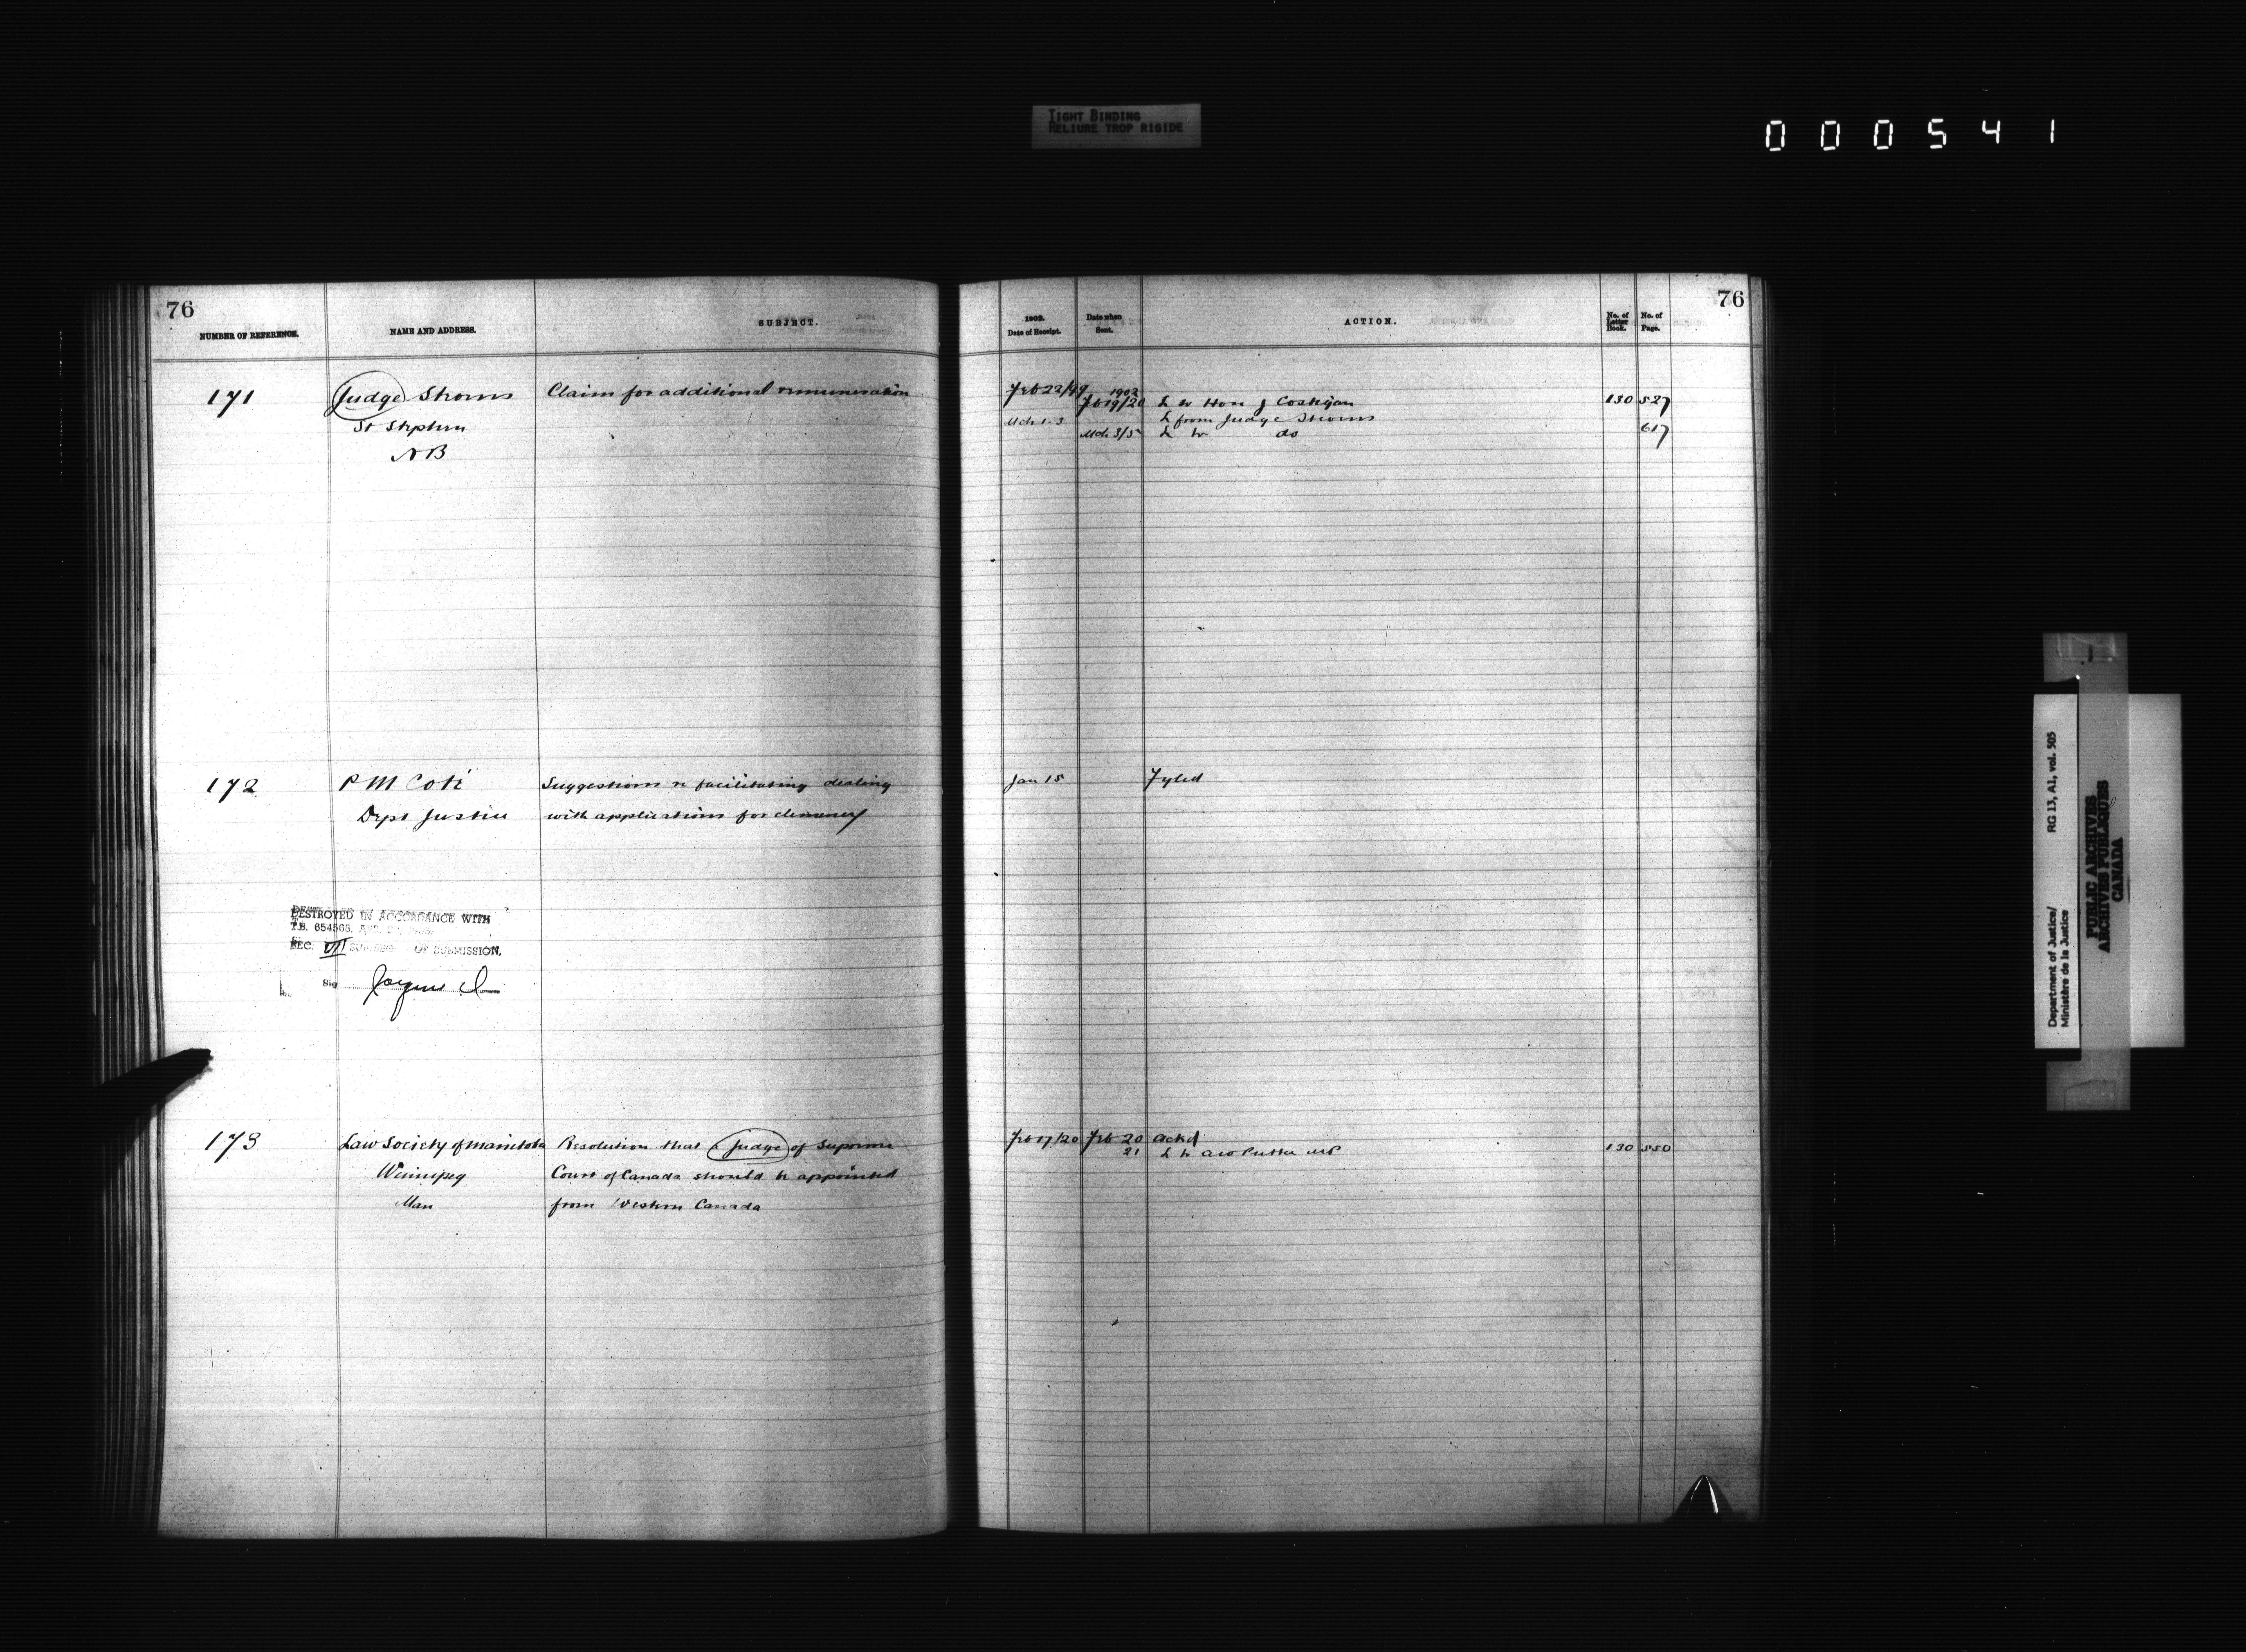 TIGHT BINDING
RELIURE TROP RIGIDE
000541
76
NUMBER OF REFERENCE.
NAME AND ADDRESS.
SUBJECT.
171
Judge Stevens
St Stephen
NB
Claim for additional remuneration
172
P M Coté
Dept Justice
Suggestions re facilitating dealing
with applications for clemency
DESTROYED IN ACCORDANCE WITH
T.B. 654566
SEC. VII OF SUBMISSION.
Sig
173
Law Society of Manitoba
Winnipeg
Man
Resolution that a Judge of Supreme
Court of Canada should be appointed
from Western Canada
76
1902.
Date of Receipt.
Date when
Sent.
ACTION.
No. of
Letter
Book.
No. of
Page.
Feb 22/99
1902
Feb 19/20 L to Hon J Costigan 130 527
Mch 1-3 L from Judge Stevens
Mch 3/5 L to do 617
Jan 15 Fyled
Feb 17/20 Feb 20 ackd
21 L to MP 130 550
Department of Justice/
Ministère de la Justice
RG 13, A1, vol. 505
PUBLIC ARCHIVES
ARCHIVES PUBLIQUES
CANADA